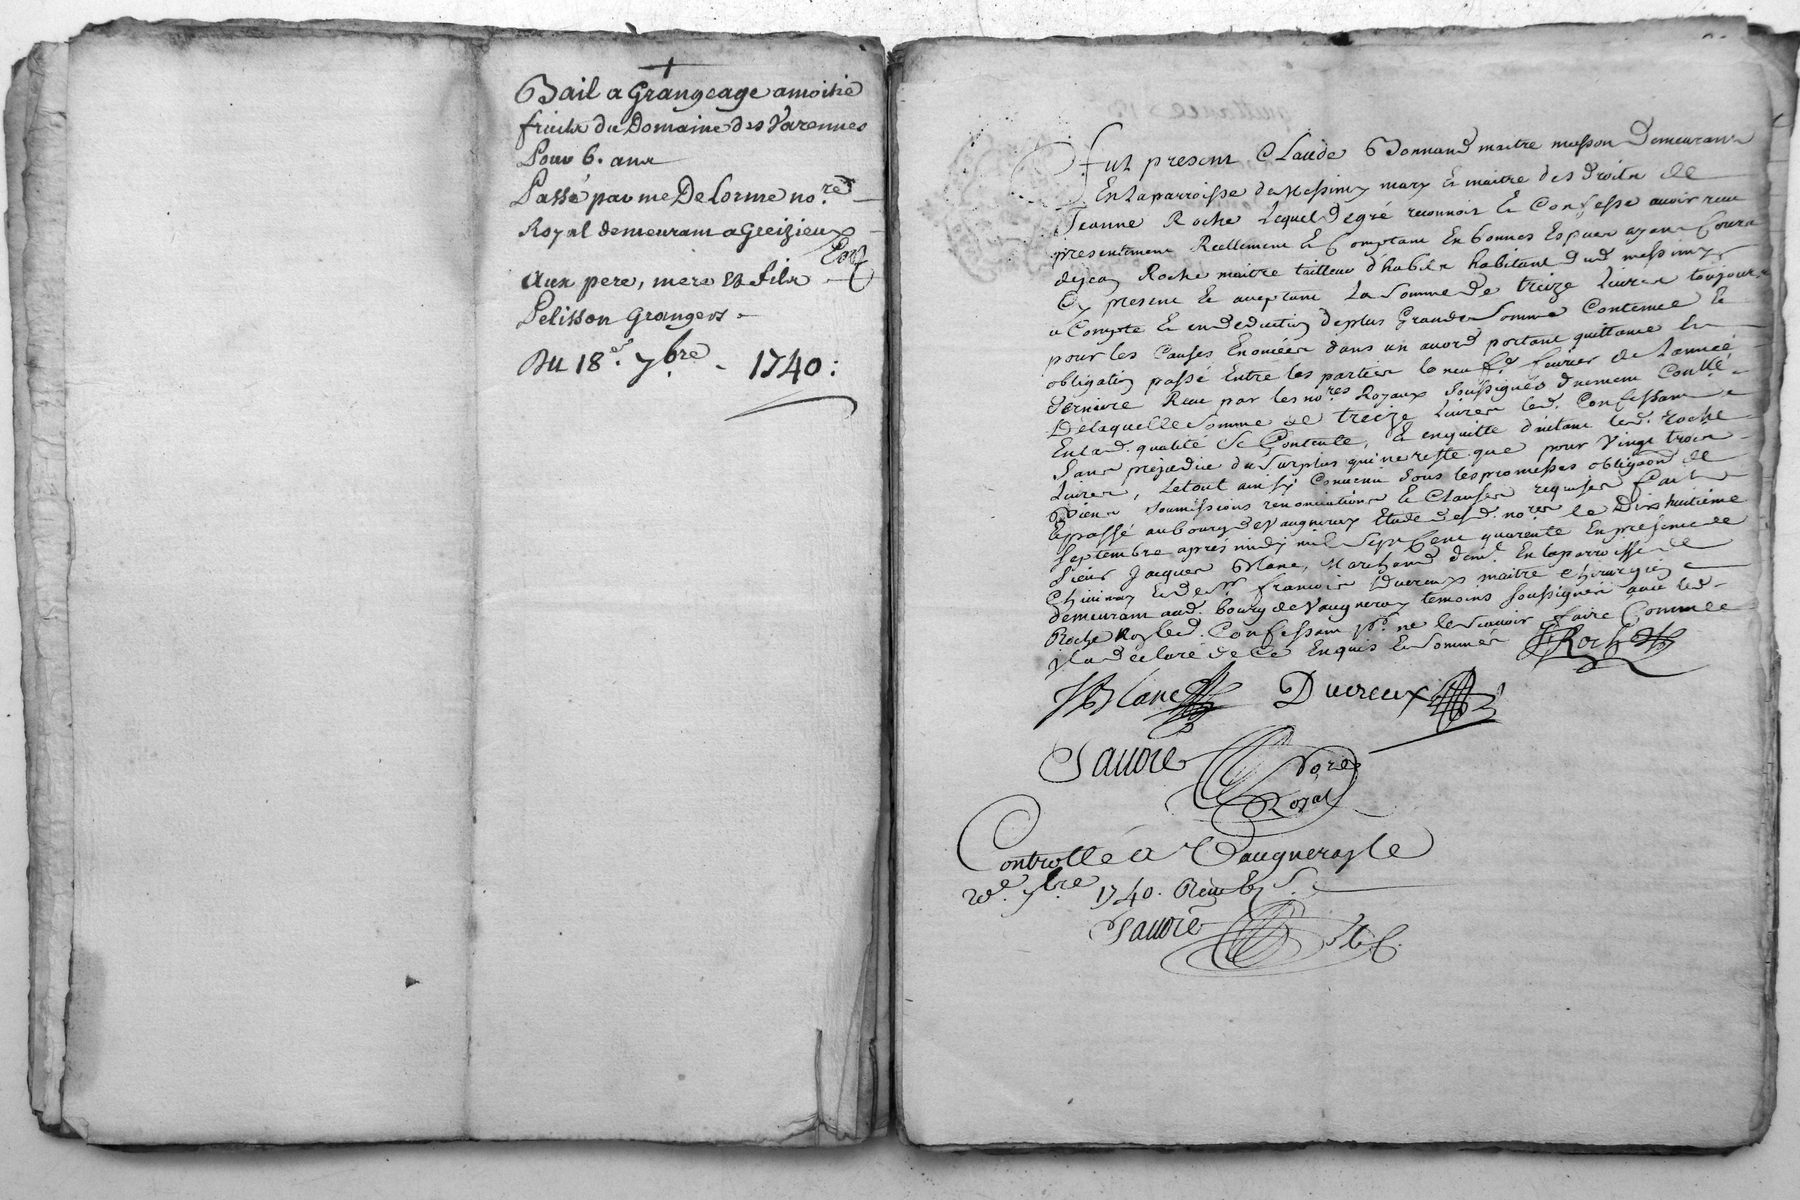 Bail a Grangeage a moitié
fruits du Domaine des Varennes
Pour 6. ans
Passé par me De Lorme no.re
Royal demeurant a Greizieux
Aux pere, mere et fils
Pelisson Grangers
Du 18e. 7bre. 1740:
Fut present Claude Bonnand maitre masson Demeurant
En la parroisse de Messimy mary et maitre des droits de
Jeanne Roche Lequel de gré reconnoit et Confesse avoir receu
presentement Reellement et Comptant En bonnes Especes ayant Cours
de jean Roche maitre tailleur d'habits habitant dud messimy
Cy present et aceptant La Somme de treize livres toujours
a Compte et en deduction de plus Grande Somme Contenue et
pour les Causes Enoncées dans un acord portant quittance et
obligation passé Entre les parties le neuf.e fevrier de L'année
derniere Receu par les no.res Royaux soussignés duement Coullé
De laquelle Somme de treize livres led. Confessant
En lad. qualité se Contente, et en quitte d'autant led. Roche
Sans prejudice du Surplus qui ne reste que pour Vingt trois
livres, Le tout ainsy Convenu sous les promesses obligaons de
Biens soumissions renonciations et Clauses requises fait
et passé au bourg de Vaugneray Etude desd. no.res le Dix huitième
Septembre après midy mil Sept Cent quarente En presence de
Sieur Jacques Blanc, Marchand dem.t En la parroisse de
et de Sr. francois Ducreux maitre chirurgien
demeurant aud. bourg de Vaugneray temoins soussignés avec led.
Roche Non led. Confessant pr. ne le Scavoir faire Comme
il a declaré de Ce Enquis et Sommés Roche
JBlanc Ducreux
Favre nore
Royal
Controllé a Vaugneray le
20e. 7bre 1740. Receu
Favre